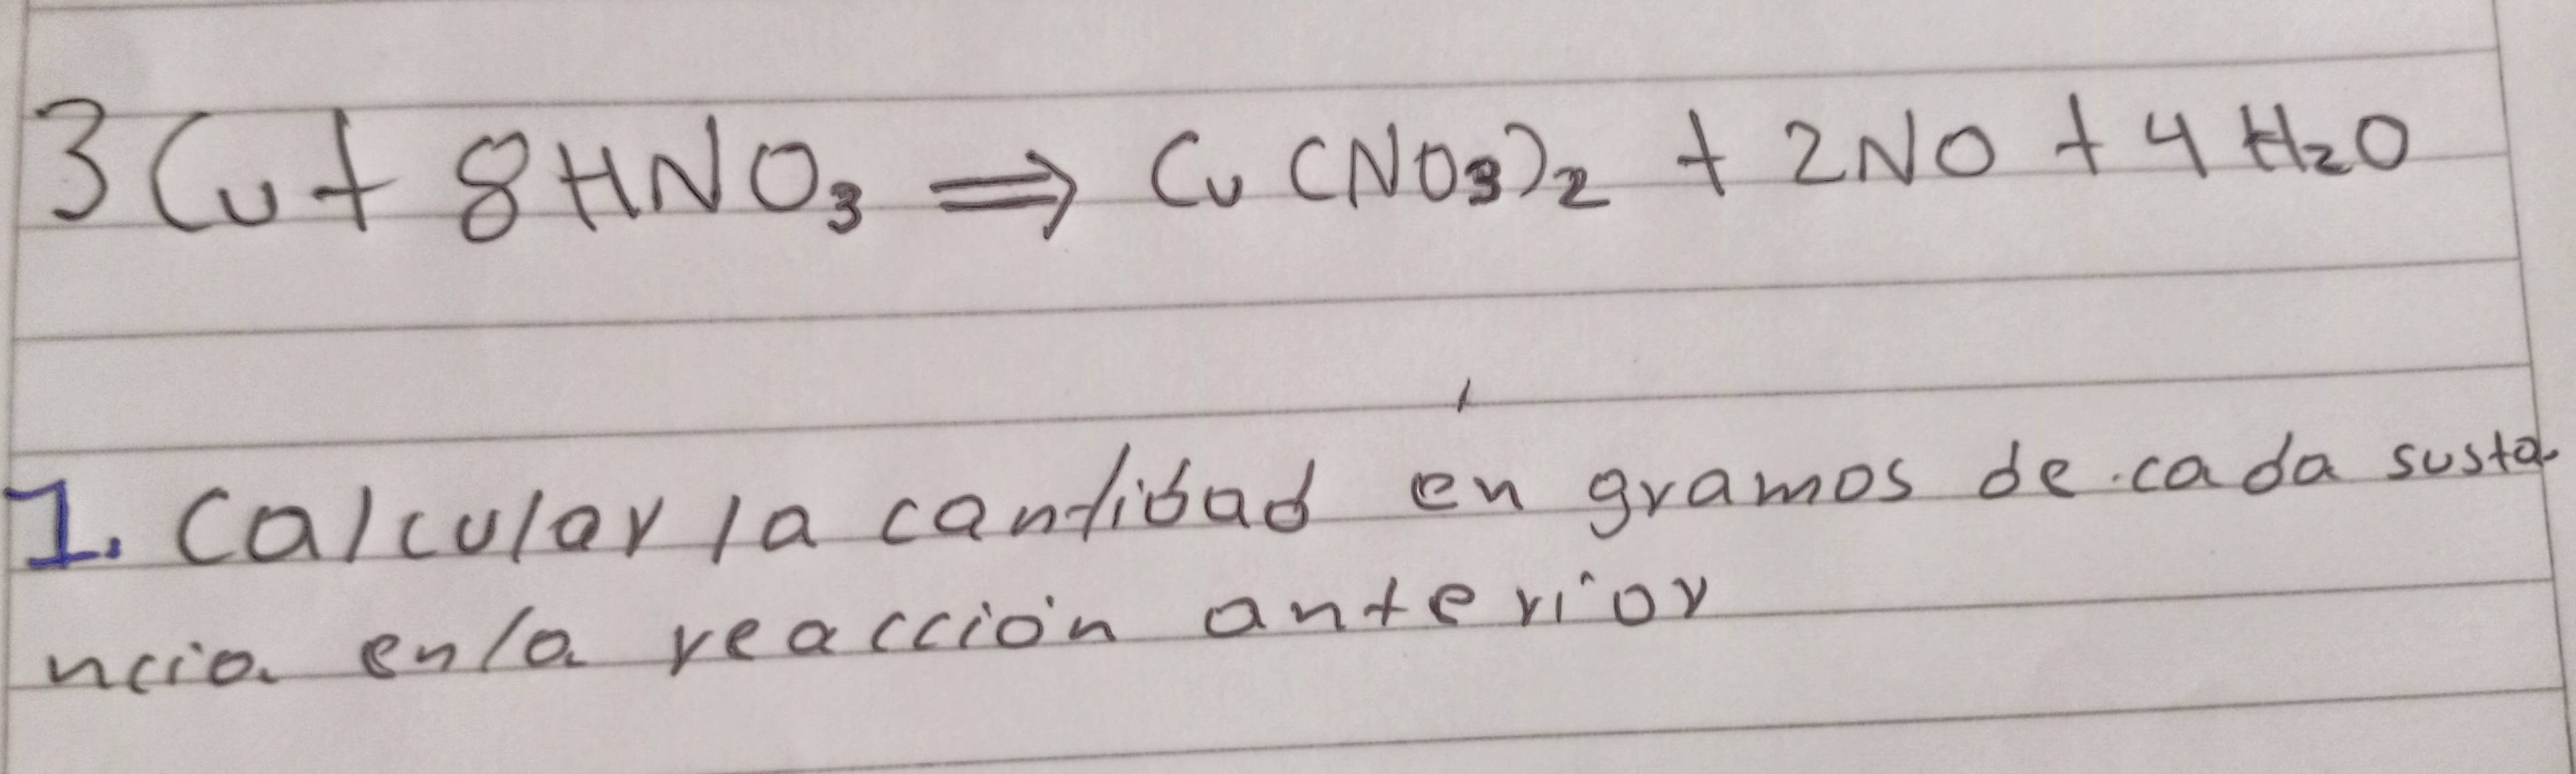 3Cu + 8HNO₃ ⇒ Cu(NO₃)₂ + 2NO + 4H₂O
1. Calcular la cantidad en gramos de cada susta
ncia en la reacción anterior